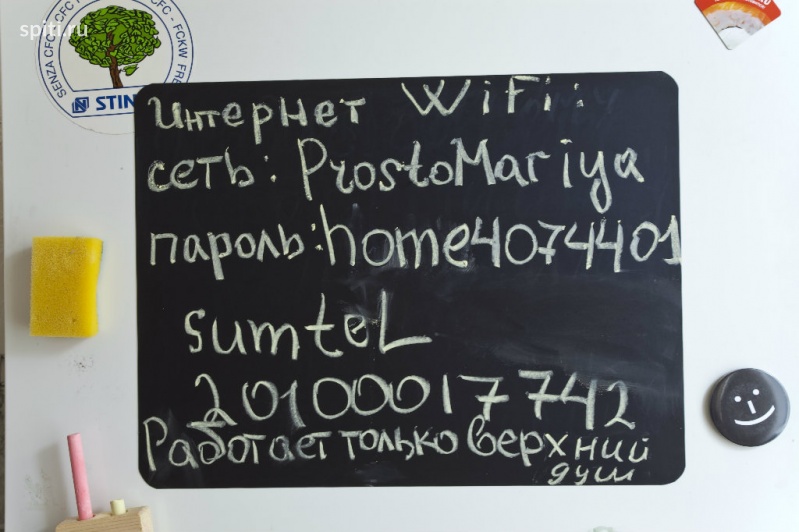 spiti.ru
SENZA CFC
CFC - FCKW FRE
STIN
Интернет WiFi:
сеть: ProstoMariya
пароль: home4074401
sumteL
20100017742
Работает только верхний
душ